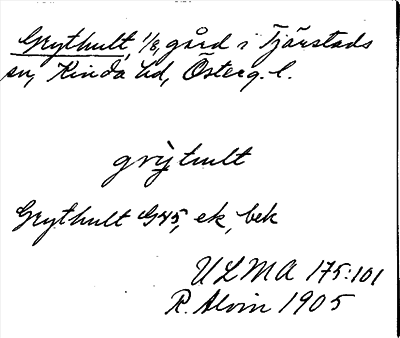 Grythult, 1/8, gård i Tjärstads
sn, Kinda hd, Österg. l.
grỳthult
Grythult G45, ek, bek
ULMA 175:101
R. Alvin 1905